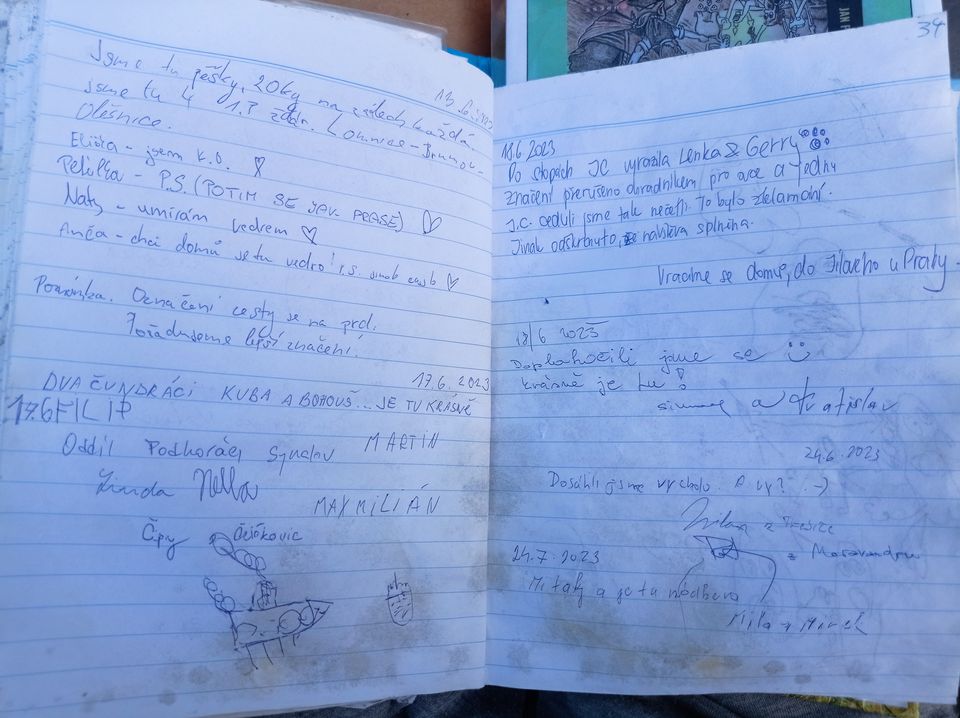 13.6.
Jsme tu pěšky, 20kg na zádech každá
jsme tu 4 1.3 Lomnice - Brumov -
Olešnice.
Eliška - jsem K.O. ♡
Peťulka - P.S. (POTIM SE JAK PRASE) ♡
Naty - umírám vedrem ♡
Anča - chci domů je tu vedro! P.S. ♡
Poznámka. Označení cesty je na prd.
Požadujeme lepší značení.
17.6.2023
DVA ČUNDRÁCI KUBA A BOHOUŠ... JE TU KRÁSNĚ
17.6 FILIP
Oddíl Podhoráci Synalov MARTIN
Nella
MAXMILIÁN
Čipy
34
JAN
18.6 2023
Po stopách JC vyrazila Lenka & Gerry
Značení přerušeno ohradníkem pro ovce a jednu
J.C. ceduli jsme tak nečetli. To bylo zklamání.
Jinak odškrtnuto, návštěva splněna.
Vracíme se domů, do Jílového u Prahy.
18/6 2023
Doplahočili jsme se
krásně je tu!
a Vratislav
24.6.2023
Dosáhli jsme vrcholu. A vy? :-)
z
24.7.2023
z
Mi taky a je tu nádhera
Míla + Mirek